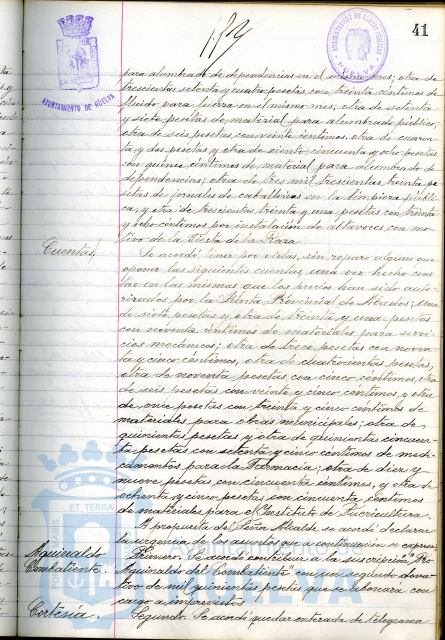 41
AYUNTAMIENTO DE HUELVA
para alumbrado de dependencias en el mismo mes; otra de
trescientas setenta y cuatro pesetas, con treinta céntimos de
fluido para fuerza en el mismo mes; otra de setenta
y siete pesetas de material para alumbrado público;
otra de seis pesetas, con veinte céntimos, otra de cuaren-
ta y dos pesetas y otra de ciento cincuenta y ocho pesetas
con quince céntimos de material para alumbrado de
dependencias; otra de tres mil trescientas treinta pe-
setas de jornales de caballerías en la limpieza públi-
ca, y otra de trescientas treinta y una pesetas con treinta
y ocho céntimos por instalación de altavoces con mo-
tivo de la Fiesta de la Raza.
Cuentas
Se acordó tener por vistas, sin reparo alguno que
oponer las siguientes cuentas, una vez hecho cons-
tar en las mismas que los precios han sido auto-
rizados por la Junta Provincial de Abastos; una
de siete pesetas y otra de treinta y una pesetas
con noventa céntimos de materiales para servi-
cios mecánicos; otra de trece pesetas con noven-
ta y cinco céntimos, otra de cuatrocientas pesetas,
otra de noventa pesetas con cinco céntimos, otra
de seis pesetas con veinte y cinco céntimos, y otra
de once pesetas con treinta y cinco céntimos de
materiales para obras municipales; otra de
quinientas pesetas y otra de quinientas cincuen-
ta pesetas con setenta y cinco céntimos de medi-
camentos para la Farmacia; otra de diez y
nueve pesetas con cincuenta céntimos, y otra de
ochenta y cinco pesetas con cincuenta céntimos
de materiales para el Instituto de Puericultura.
A propuesta del Señor Alcalde se acordó declarar
la urgencia de los asuntos que a continuación se expresan:
Aguinaldo
Combatiente.
Primero. Se acordó contribuir a la suscripción "Pro
Aguinaldo del Combatiente" con un segundo dona-
tivo de mil quinientas pesetas que se abonara con
cargo a imprevistos.
Cortesía.
Segundo. Se acordó quedar enterada de telegrama